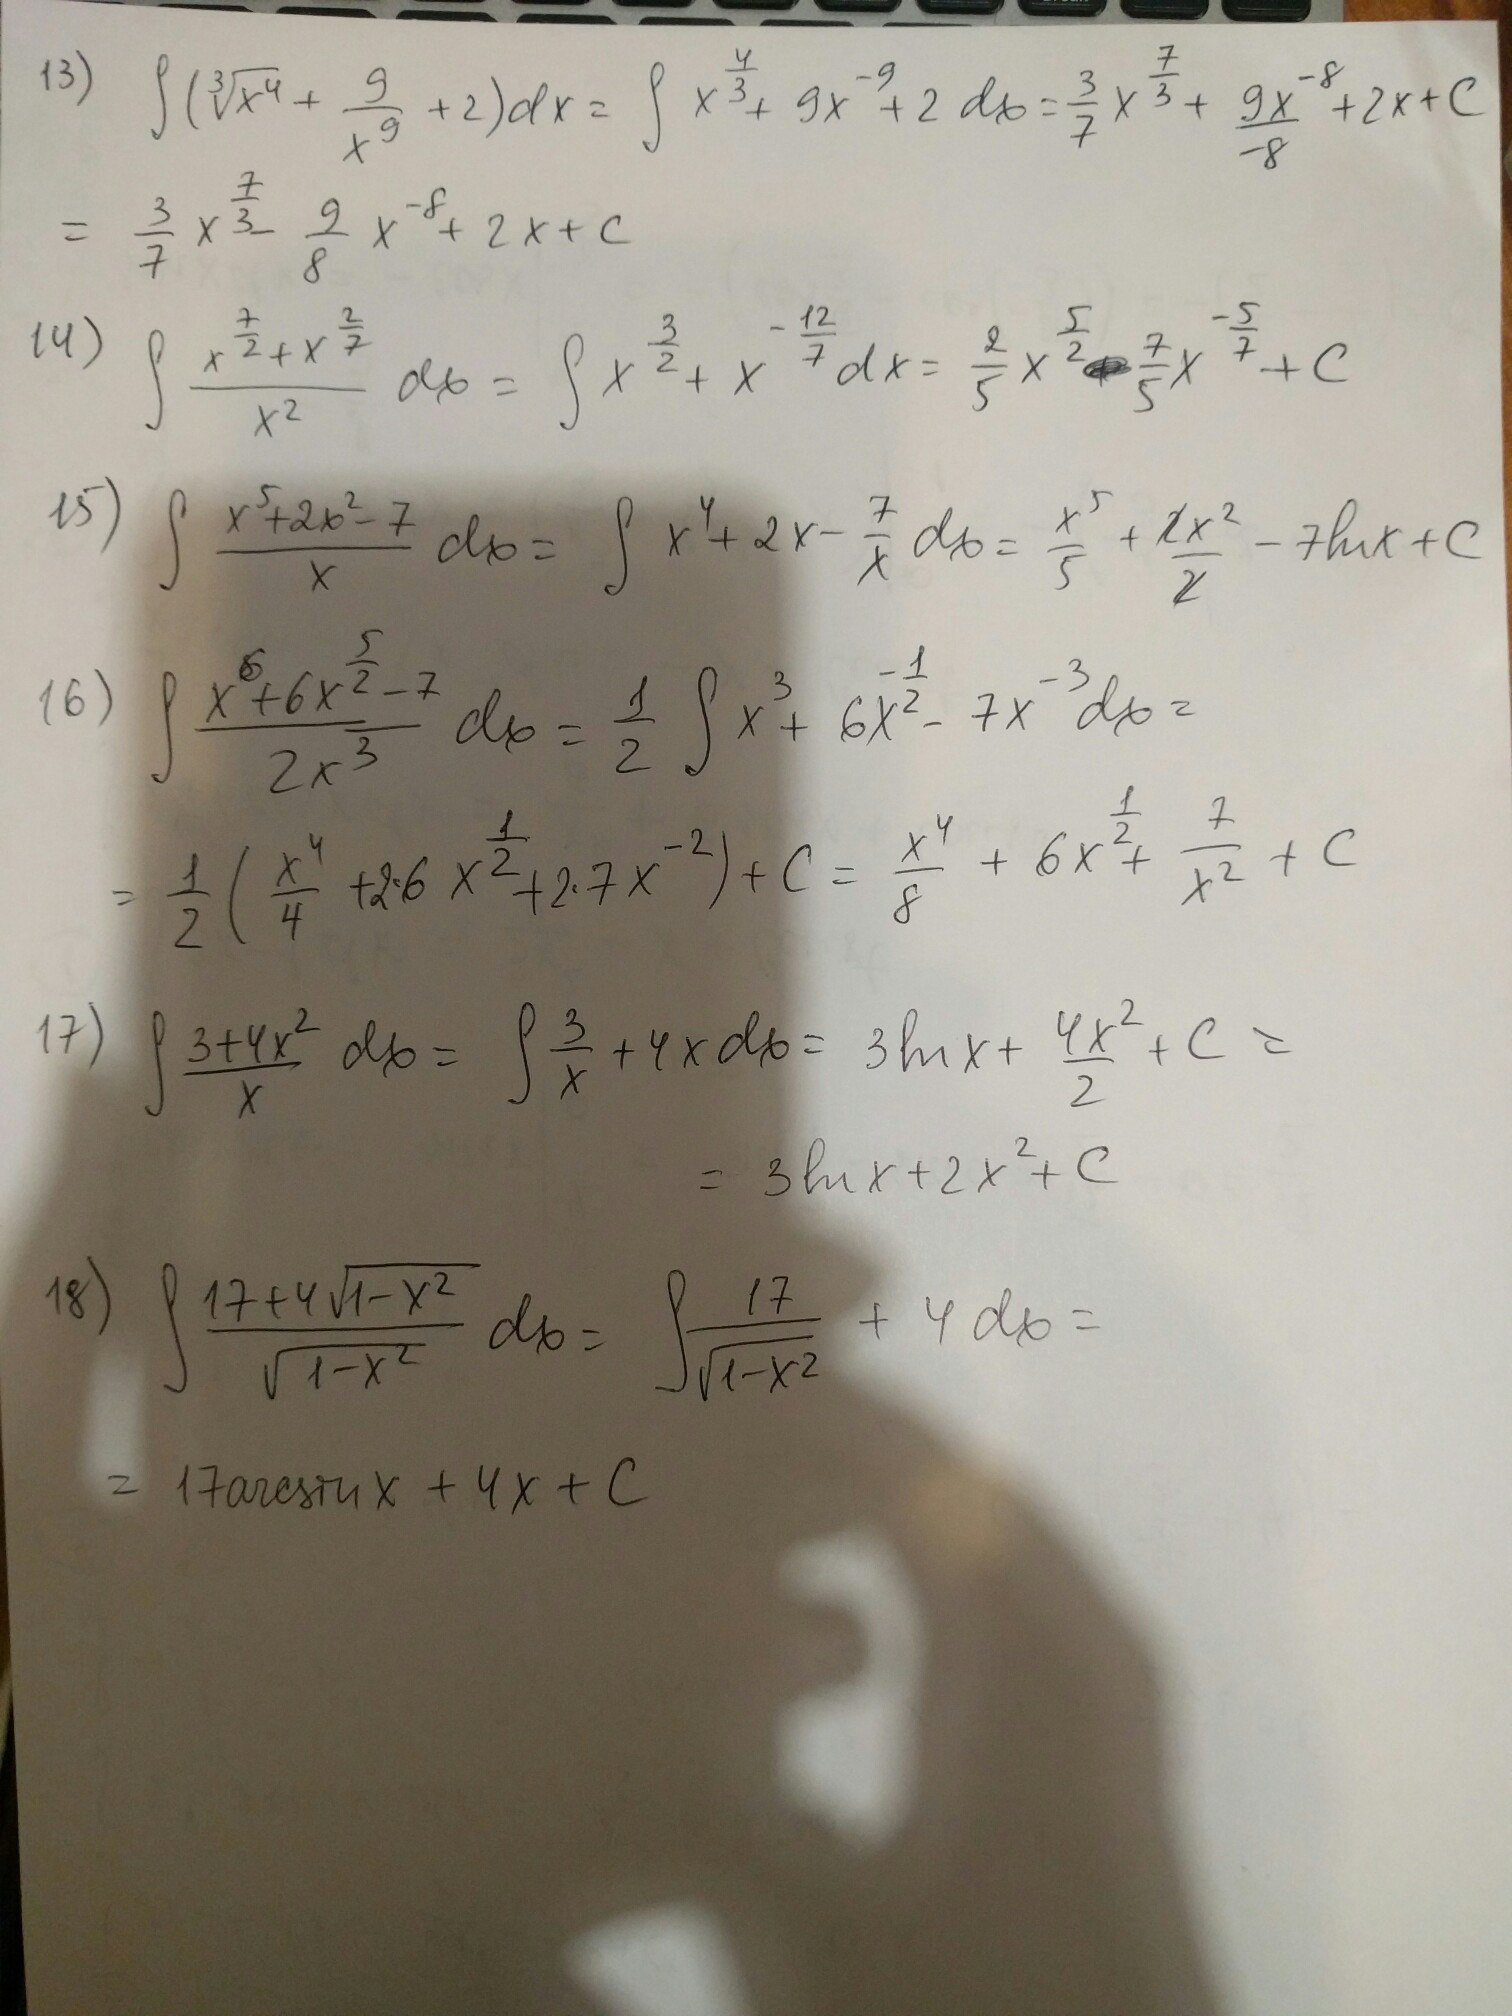 13) ∫(∛x⁴ + 9/x⁹ + 2)dx = ∫ x^(4/3) + 9x^(-9) + 2 dx = 3/7 x^(7/3) + 9x^(-8)/-8 + 2x + C
= 3/7 x^(7/3) - 9/8 x^(-8) + 2x + C
14) ∫ (x^(7/2) + x^(2/7))/x² dx = ∫ x^(3/2) + x^(-12/7) dx = 2/5 x^(5/2) - 7/5 x^(-5/7) + C
15) ∫ (x⁵+2x²-7)/x dx = ∫ x⁴ + 2x - 7/x dx = x⁵/5 + 2x²/2 - 7lnx + C
16) ∫ (x⁶+6x^(5/2)-7)/2x³ dx = 1/2 ∫ x³ + 6x^(-1/2) - 7x^(-3) dx =
= 1/2 ( x⁴/4 + 2·6 x^(1/2) + 2·7x^(-2) ) + C = x⁴/8 + 6x^(1/2) + 7/x² + C
17) ∫ (3+4x²)/x dx = ∫ 3/x + 4x dx = 3lnx + 4x²/2 + C =
= 3lnx + 2x² + C
18) ∫ (17+4√(1-x²))/√(1-x²) dx = ∫ 17/√(1-x²) + 4 dx =
= 17arcsinx + 4x + C